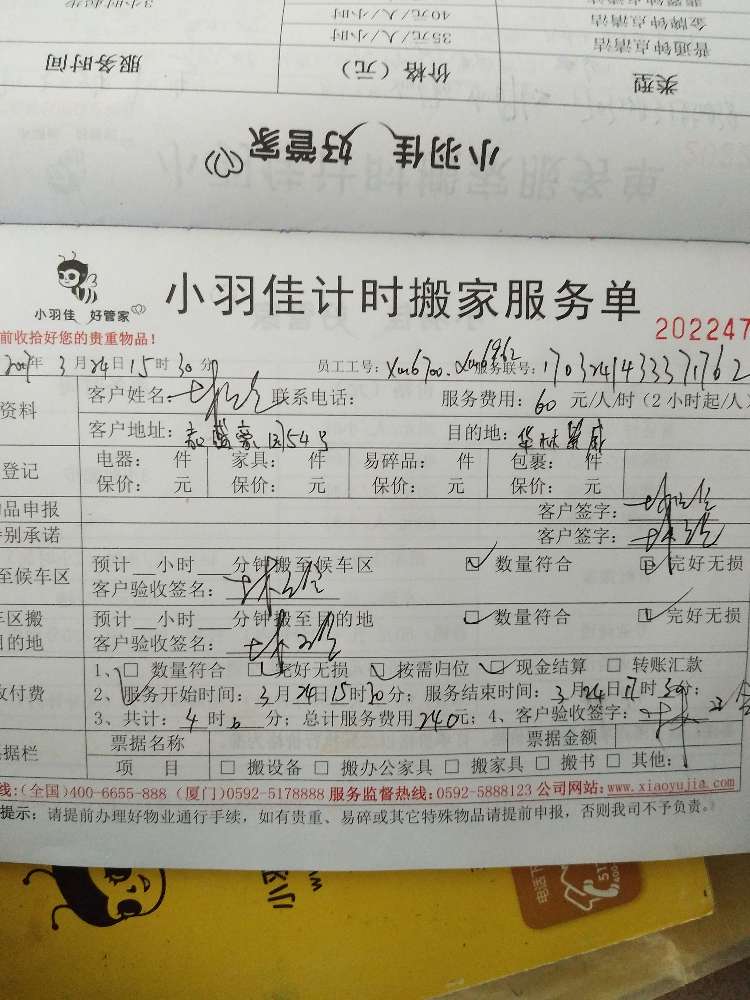 3小时起步
金牌钟点清洁 40元/人/小时
普通钟点清洁 35元/人/小时
类型 价格（元） 服务时间
小羽佳 好管家
小羽佳 好管家
小羽佳计时搬家服务单
前收拾好您的贵重物品！ 202247
2017年3月24日15时30分 员工工号： 服务联号：1703241433371762
资料 客户姓名： 联系电话： 服务费用：60元/人/时（2小时起/人）
客户地址： 54号 目的地：
登记 电器： 件 家具： 件 易碎品： 件 包裹： 件
保价： 元 保价： 元 保价： 元 保价： 元
品申报 客户签字：
别承诺 客户签字：
至候车区 预计__小时__分钟搬至候车区 数量符合 完好无损
客户验收签名：
区搬 预计__小时__分钟搬至目的地 数量符合 完好无损
目的地 客户验收签名：
收付费 1、□ 数量符合 完好无损 按需归位 现金结算 □ 转账汇款
2、服务开始时间：3月24日15时30分；服务结束时间：3月24日17时30分；
3、共计：4时0分；总计服务费用240元；4、客户验收签字：
据栏 票据名称 票据金额
项 目 □ 搬设备 □ 搬办公家具 □ 搬家具 □ 搬书 □ 其他：
线:(全国)400-6655-888 (厦门)0592-5178888 服务监督热线:0592-5888123 公司网站:www.xiaoyujia.com
提示：请提前办理好物业通行手续，如有贵重、易碎或其它特殊物品请提前申报，否则我司不予负责。